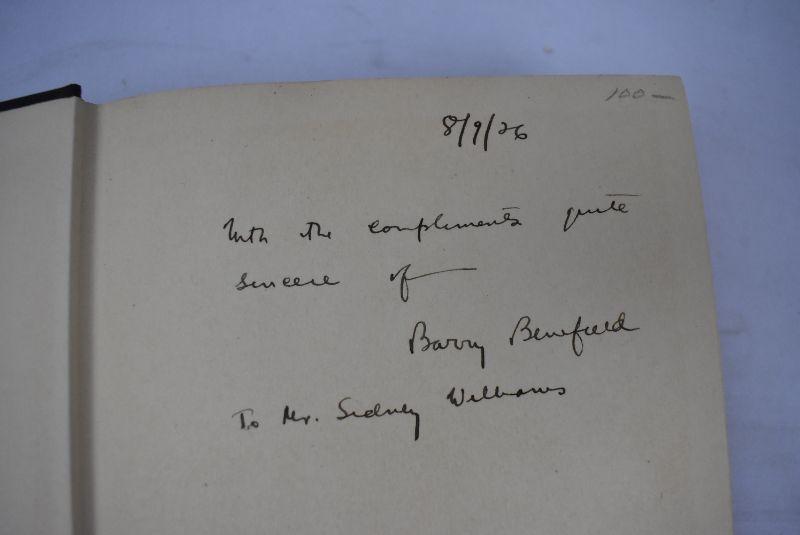 100 —
8/9/26
With the compliments quite
sincere of
Barry Benefield
To Mr. Sidney Williams